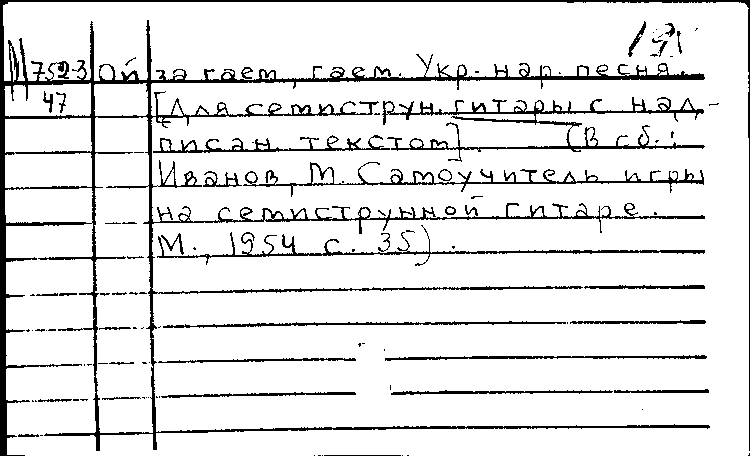 М752-3 Ой за гаем, гаем. Укр. нар. песня.
47 [Для семиструн. гитары с над-
писан. текстом]. (В сб.:
Иванов, М. Самоучитель игры
на семиструнной гитаре.
М., 1954 с. 35).